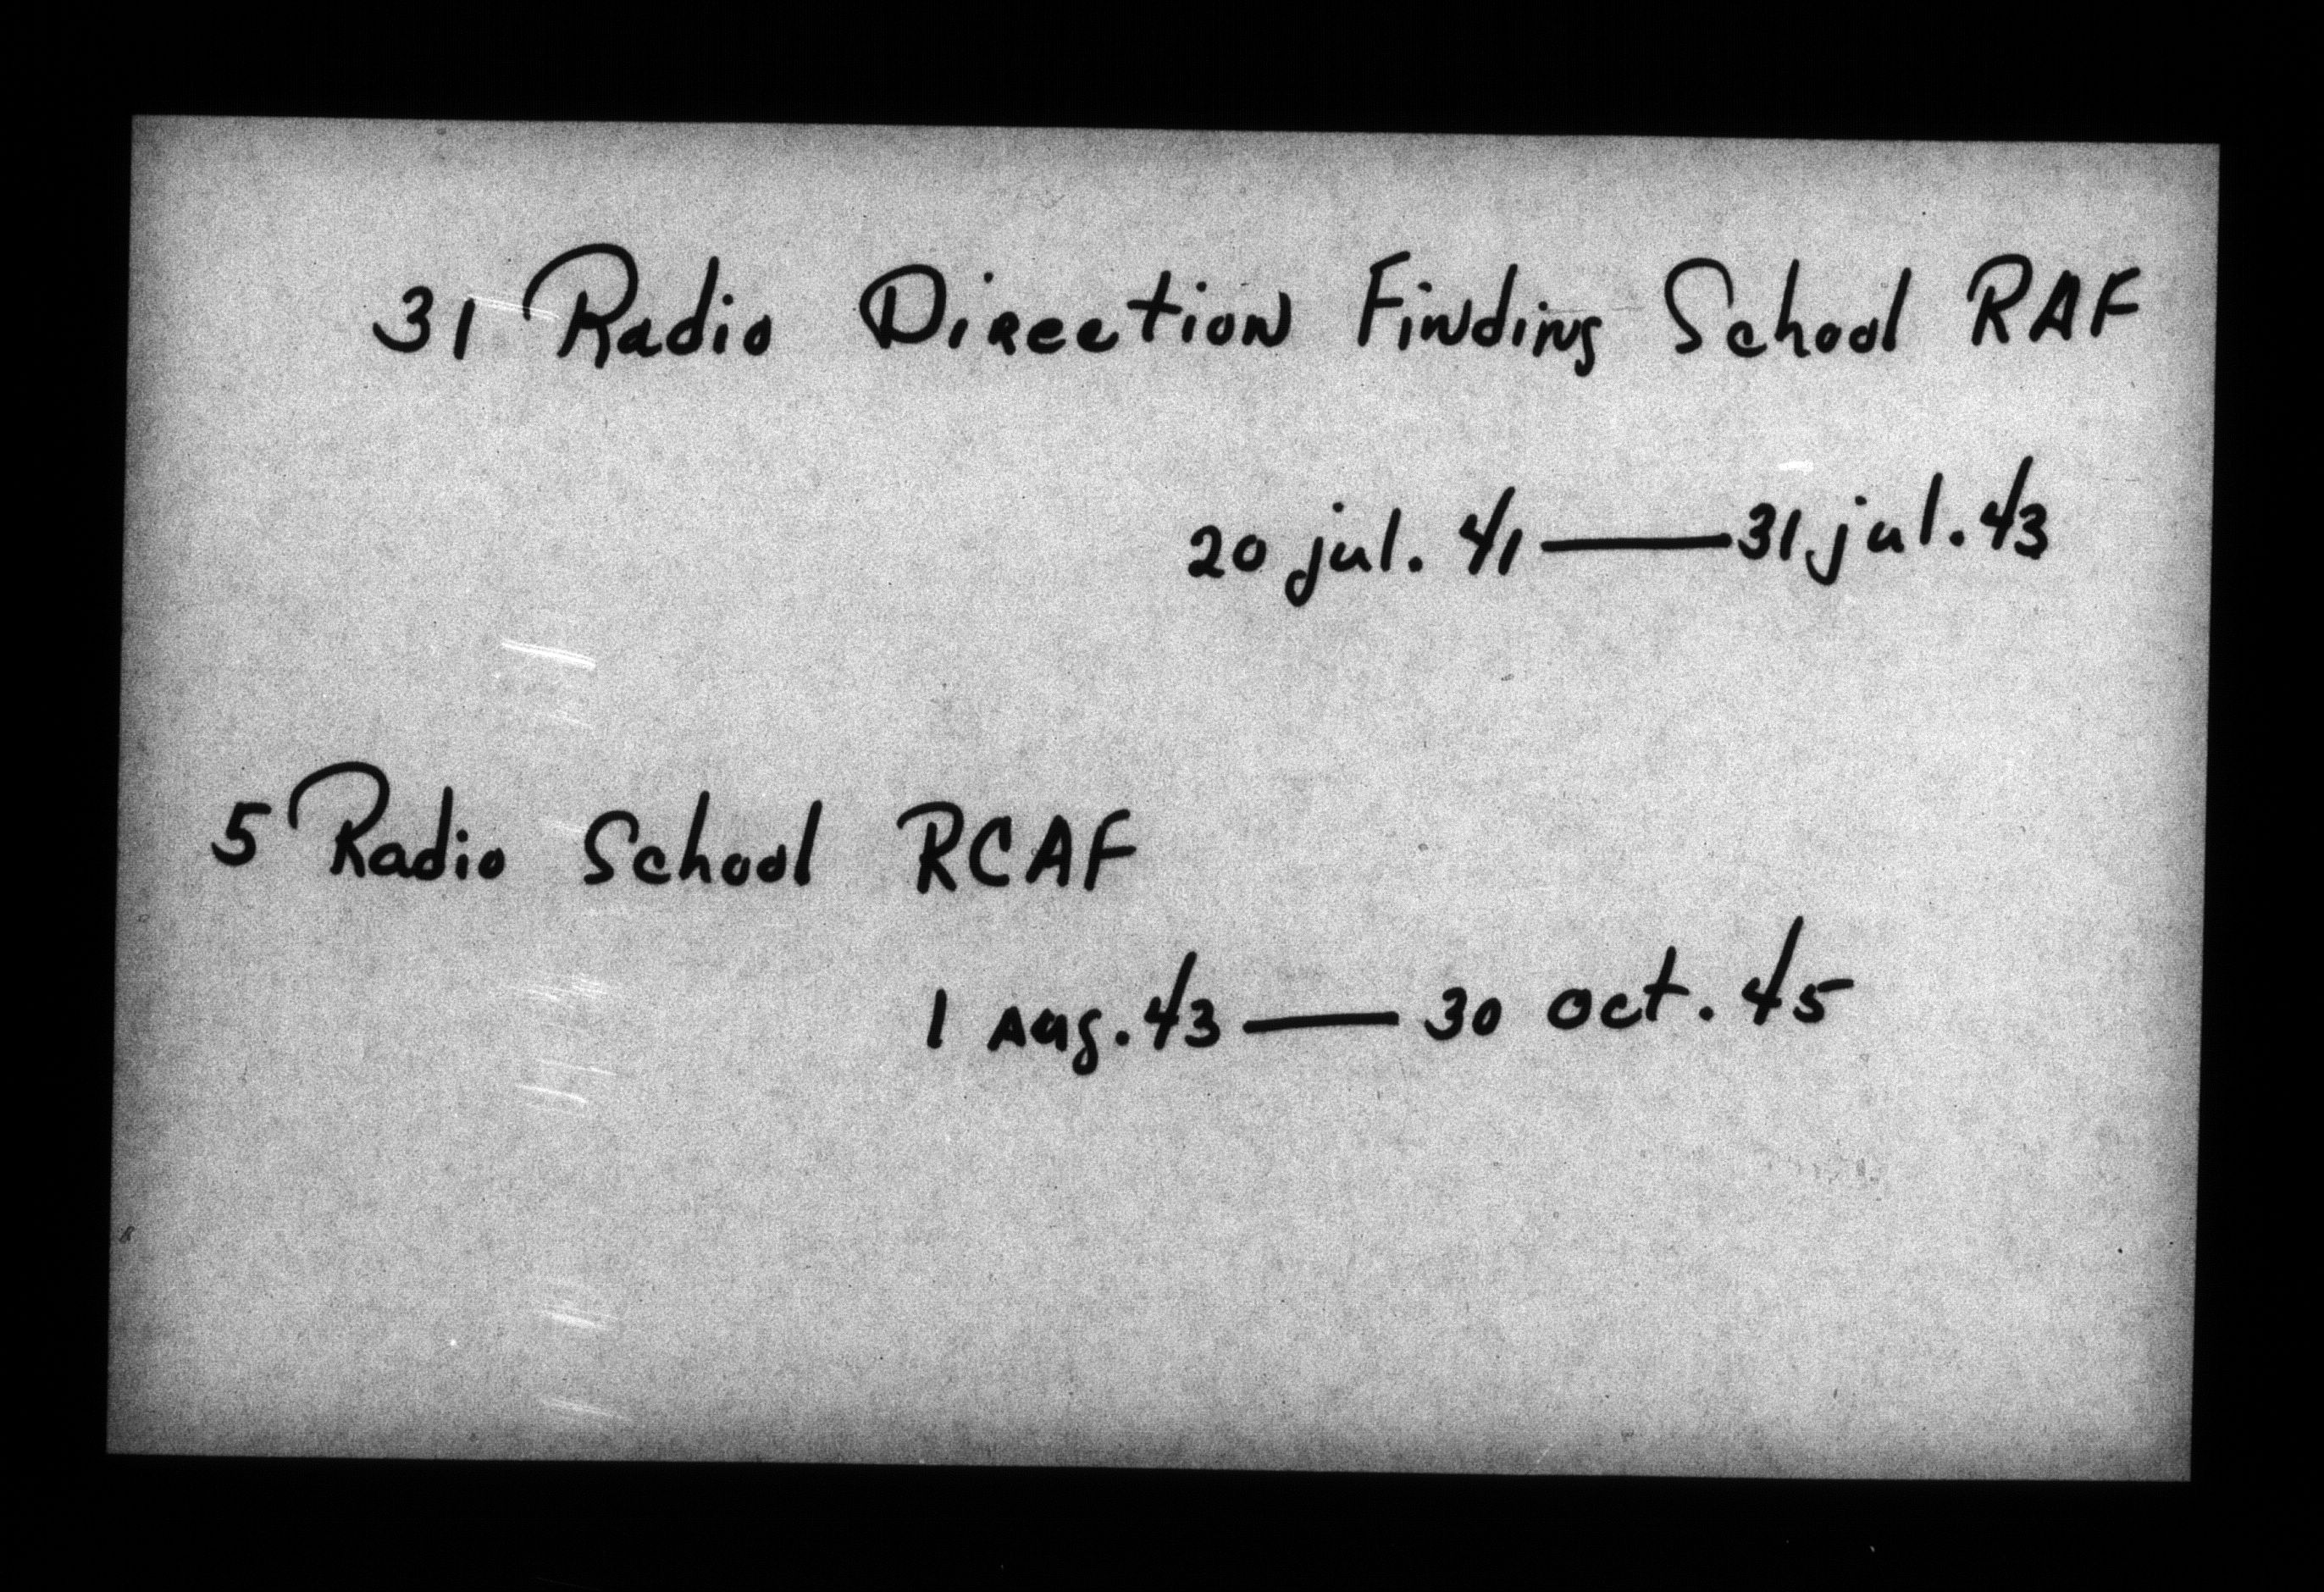 31 Radio Direction Finding School RAF
20 jul. 41 — 31 jul. 43
5 Radio School RCAF
1 Aug. 43 — 30 oct. 45